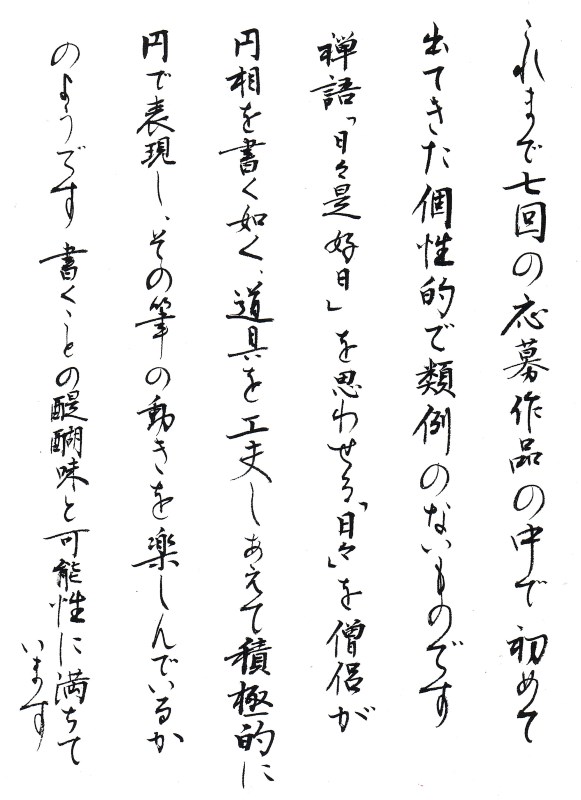 これまで七回の応募作品の中で初めて
出てきた個性的で類例のないものです
禅語「日々是好日」を思わせる「日々」を僧侶が
円相を書く如く、道具を工夫しあえて積極的に
円で表現し、その筆の動きを楽しんでいるか
のようです 書くことの醍醐味と可能性に満ちて
います